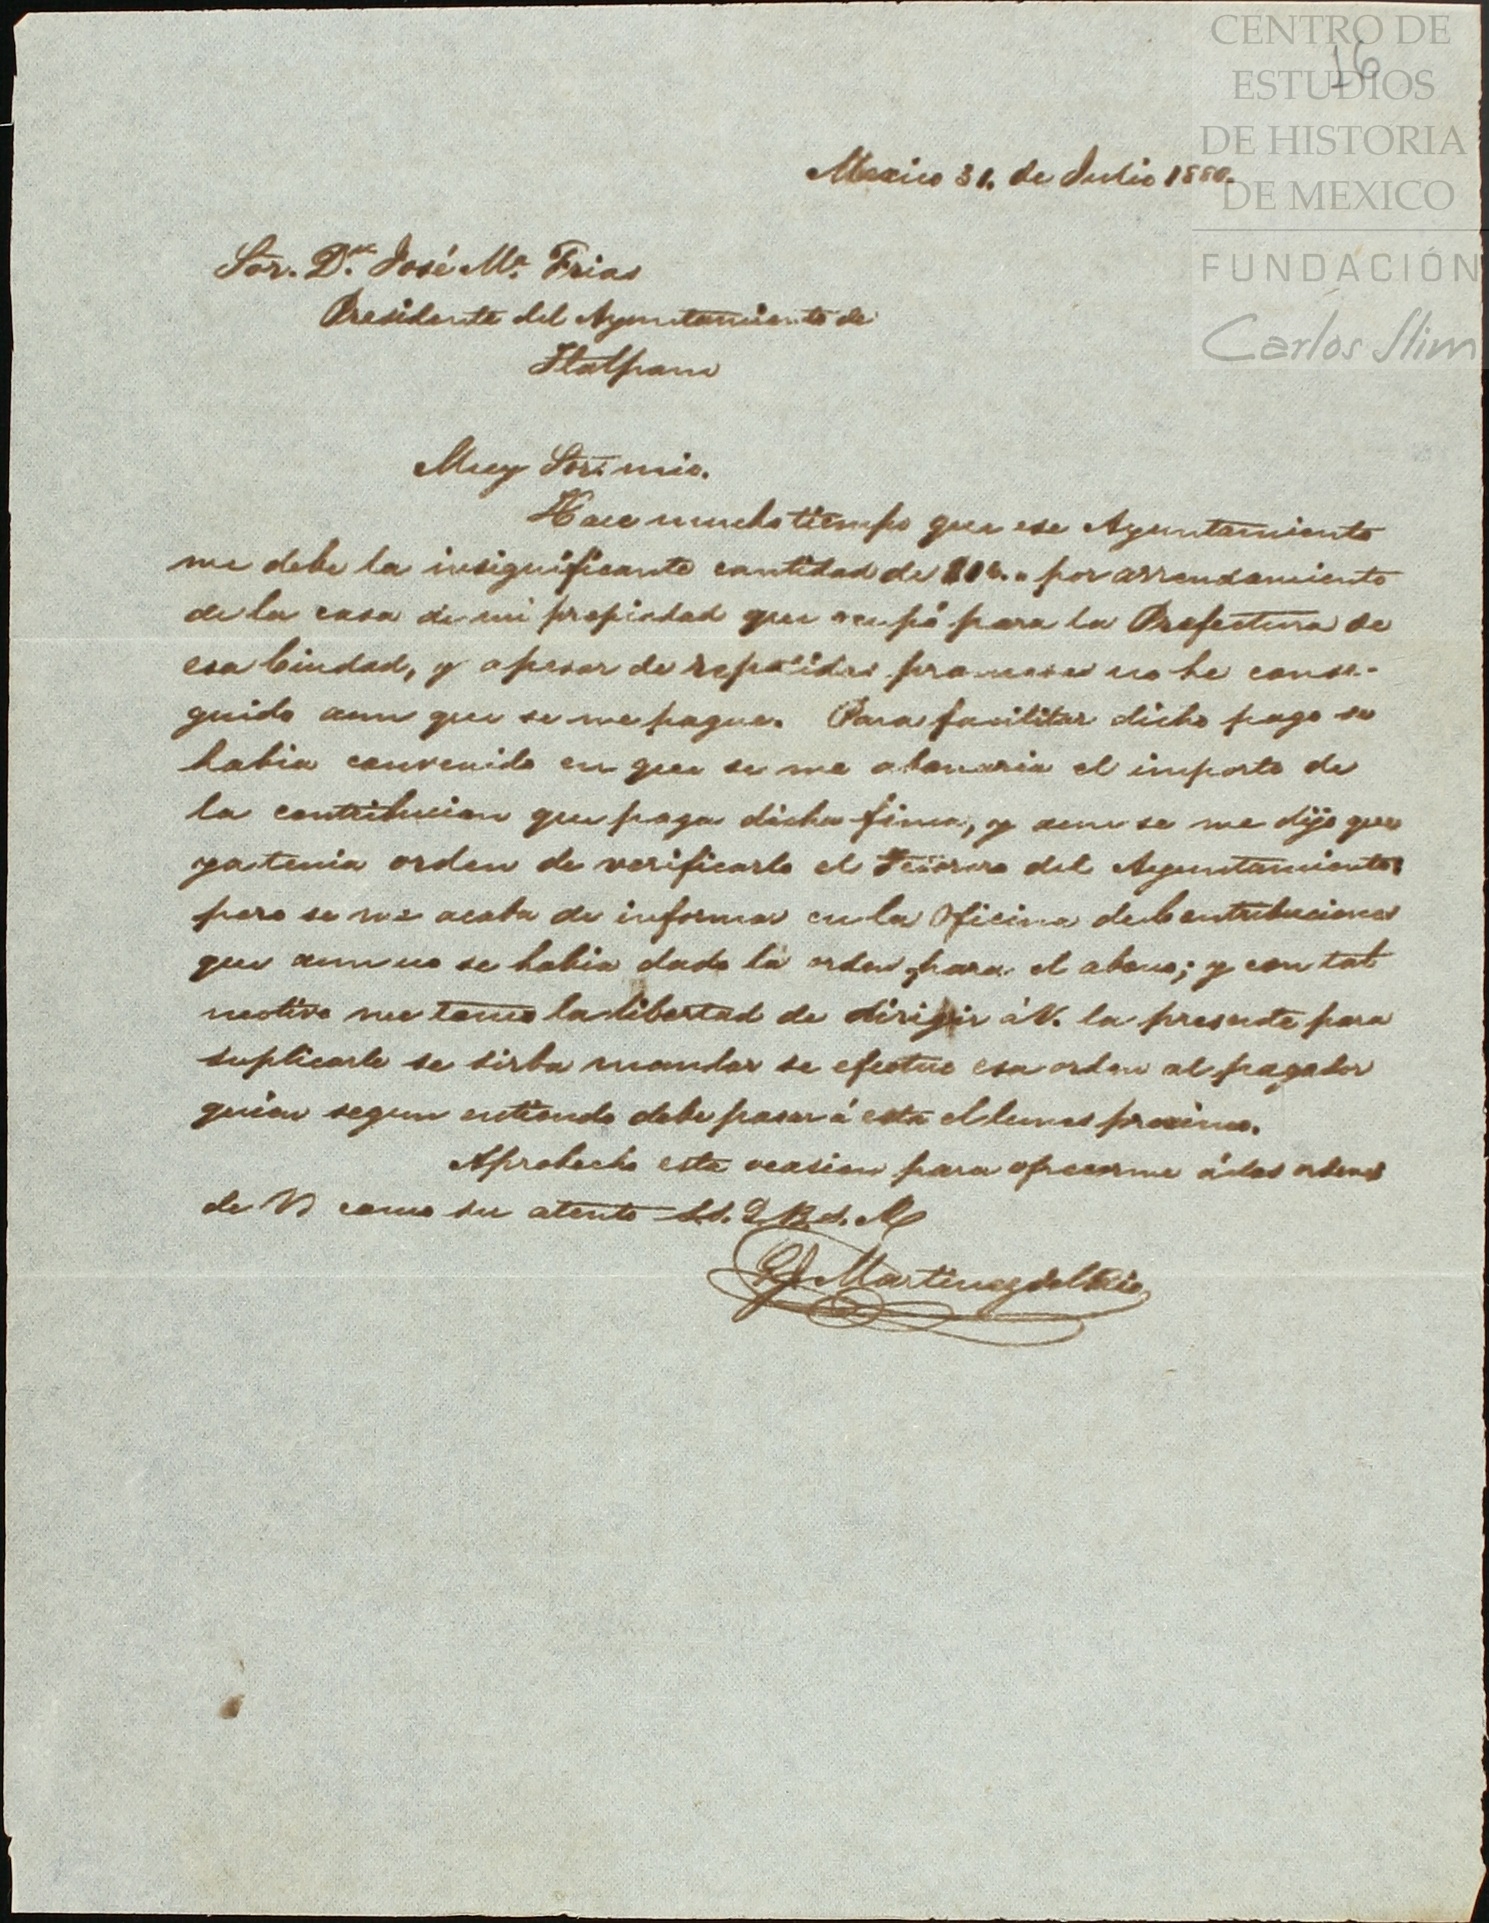 CENTRO DE
ESTUDIOS
DE HISTORIA
DE MEXICO
FUNDACIÓN
Carlos Slim
16
Mexico 31. de Julio 1880.
Sor. Dn. José Ma. Frias
Presidente del Ayuntamiento de
Tlalpam
Muy Sor. mio.
Hace mucho tiempo que ese Ayuntamiento
me debe la insignificante cantidad de por arrendamiento
de la casa de mi propiedad que ocupó para la Prefectura de
esa Ciudad, y apesar de repetidas promesas no he conse-
guido aun que se me pague. Para facilitar dicho pago se
habia convenido en que se me abonaria el importe de
la contribucion que paga dicha finca, y aun se me dijo que
ya tenia orden de verificarlo el Tesorero del Ayuntamiento;
pero se me acaba de informar en la Oficina de Contribuciones
que aun no se habia dado la orden para el abono; y con tal
motivo me tomo la libertad de dirigir á V. la presente para
suplicarle se sirba mandar se efectue esa orden al pagador
quien segun entiendo debe pasar á esta el lunes proximo.
Aprobecho esta ocasion para ofrecerme á las ordenes
de V como su atento S.S. Q. B. S. M
Martinez del Rio